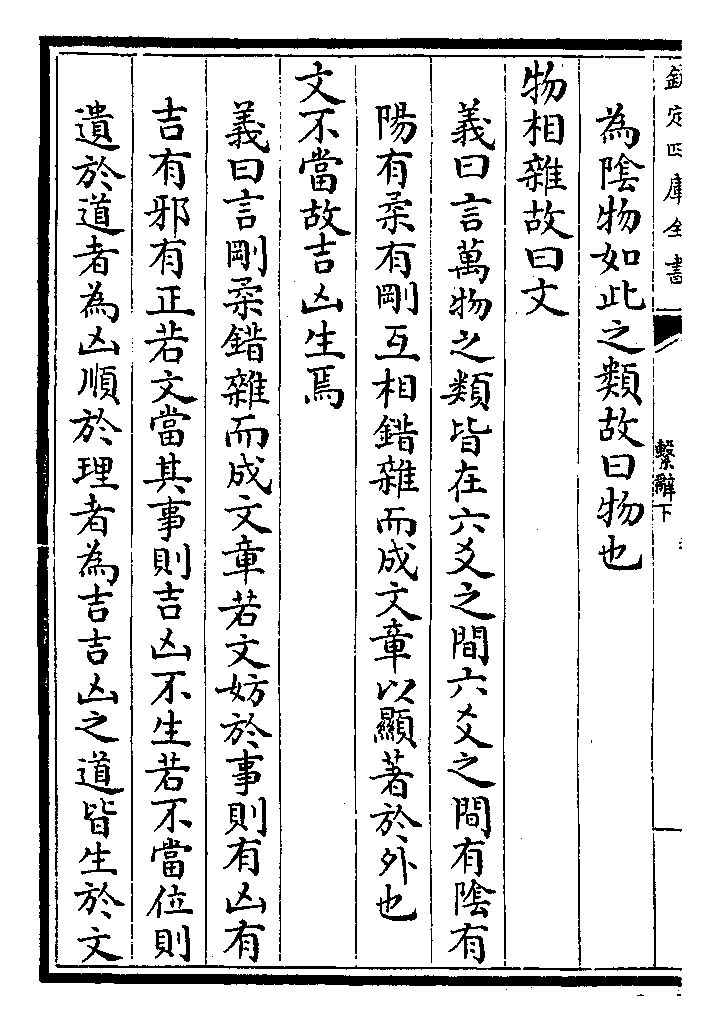 欽定四庫全書
繫辭下
為陰物如此之類故曰物也
物相雜故曰文
義曰言萬物之類皆在六爻之間六爻之間有陰有
陽有柔有剛互相錯雜而成文章以顯著於外也
文不當故吉凶生焉
義曰言剛柔錯雜而成文章若文妨於事則有凶有
吉有邪有正若文當其事則吉凶不生若不當位則
遺於道者為凶順於理者為吉吉凶之道皆生於文